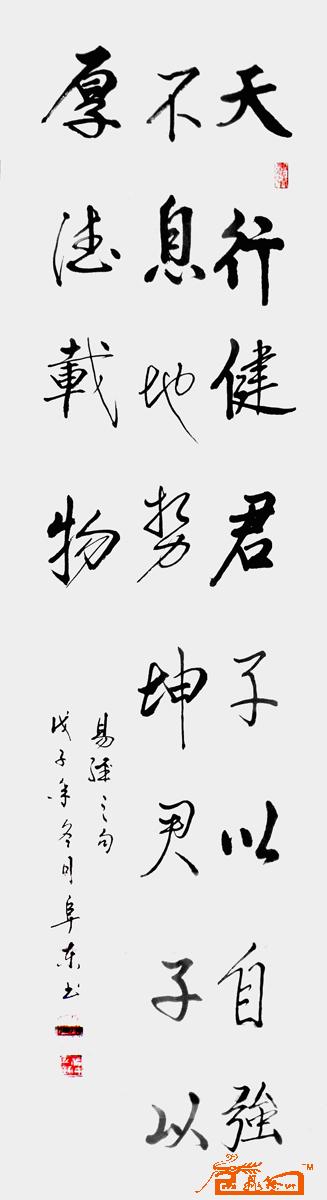 天行健君子以自強
不息地勢坤君子以
厚德載物
易經之句
戊子年冬月阜東书